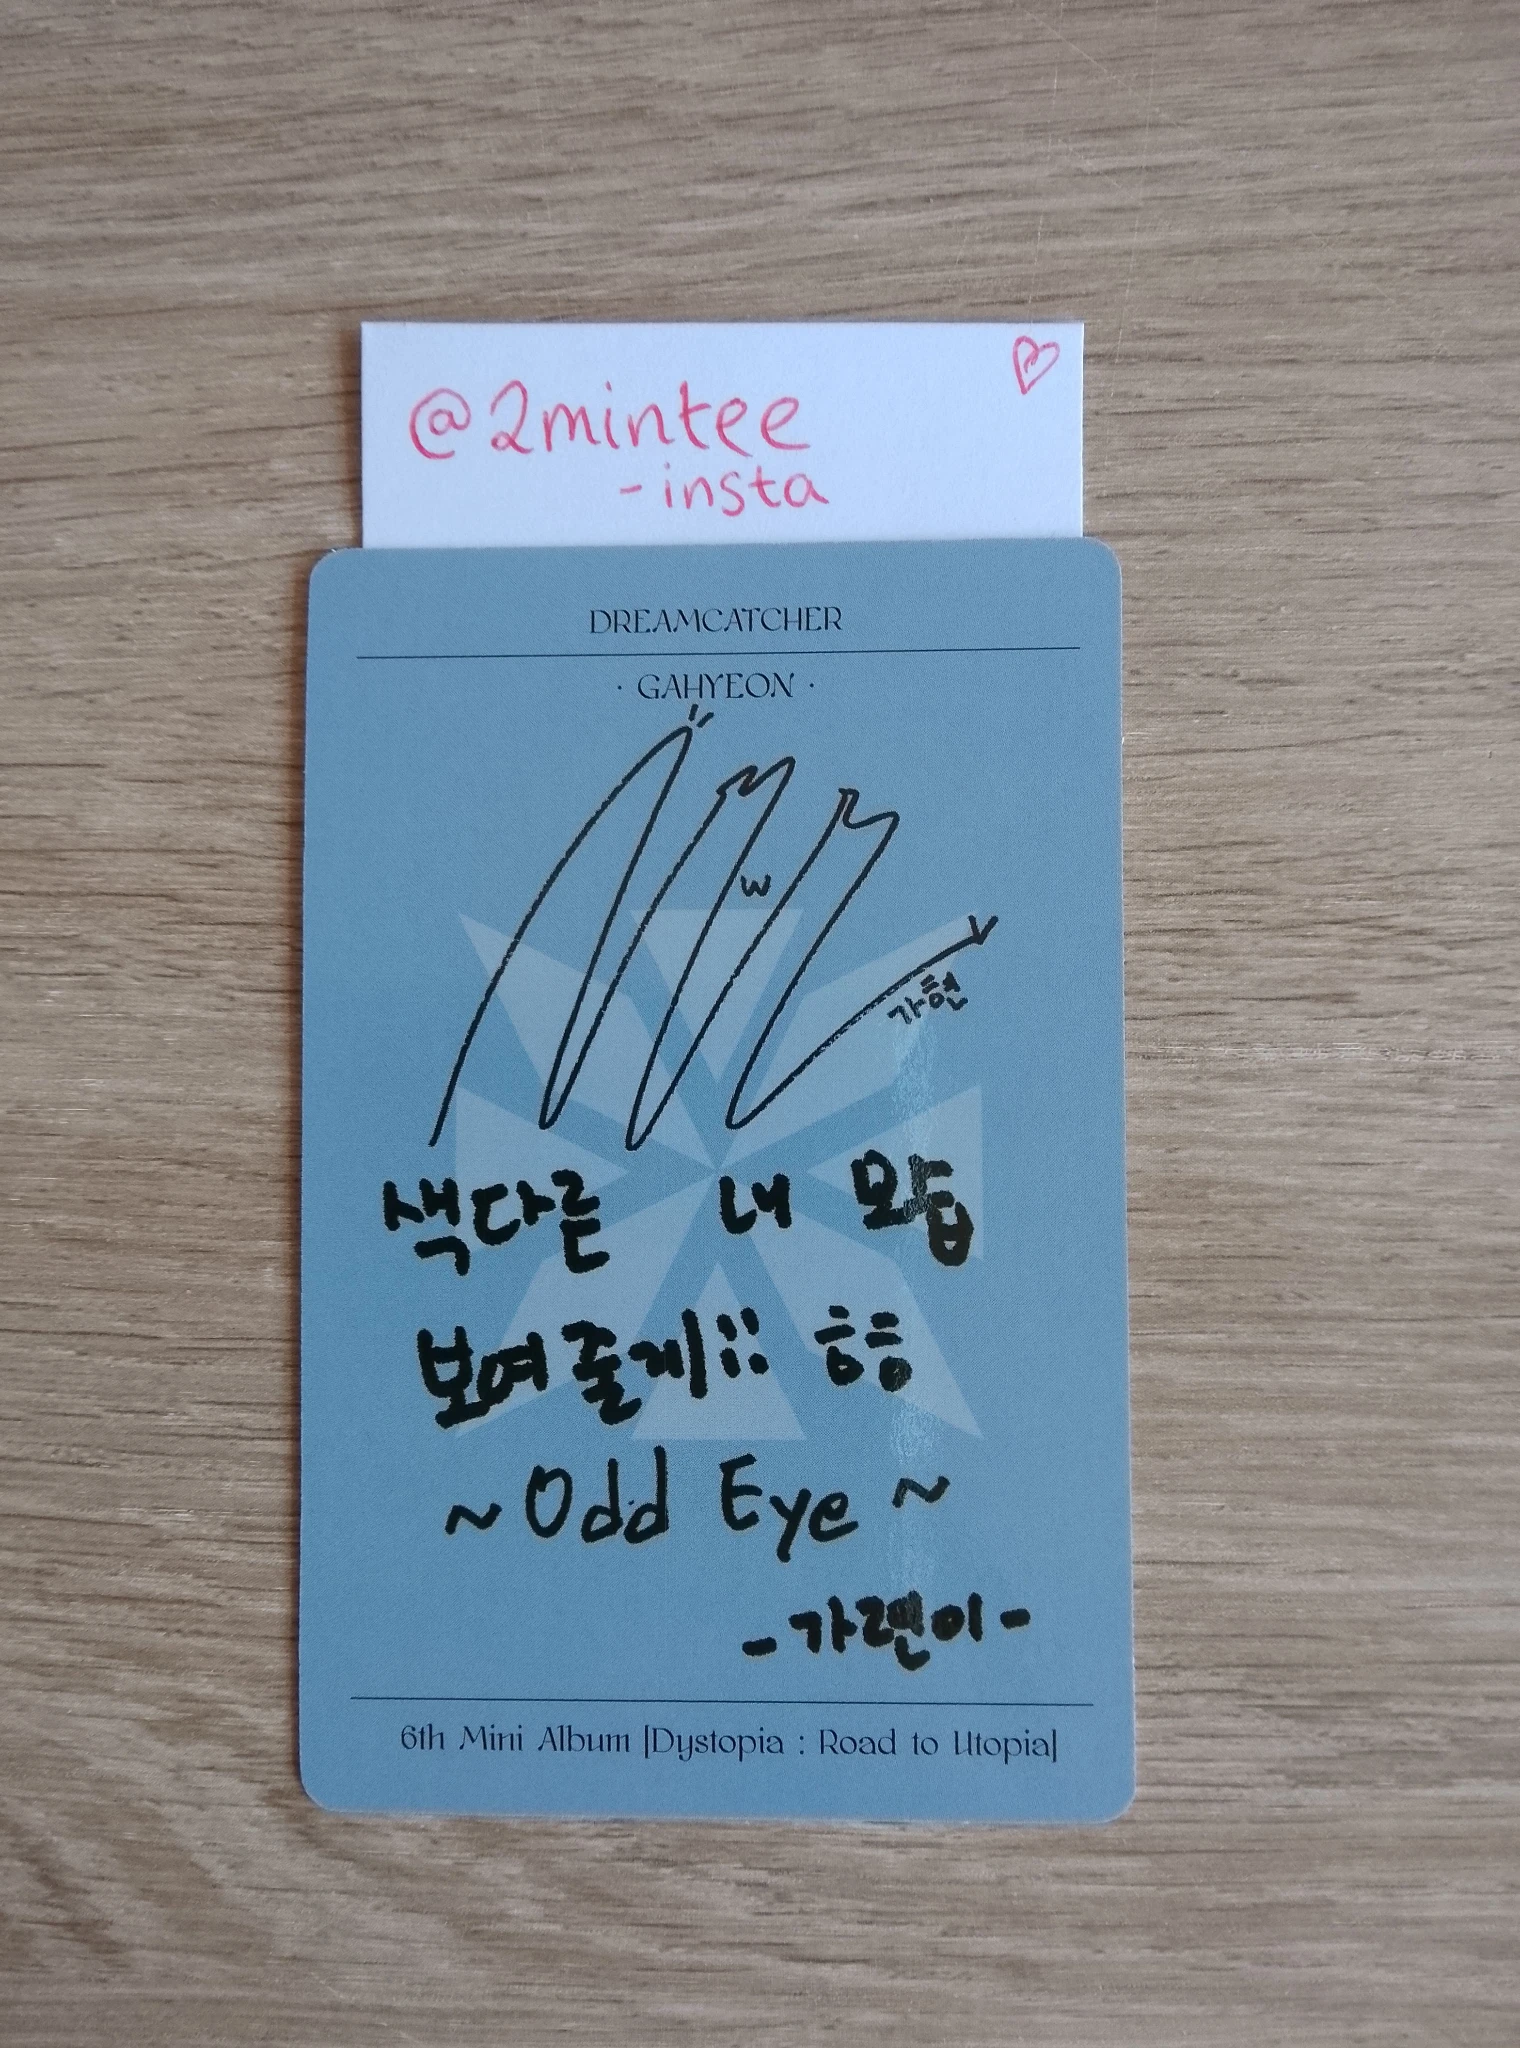 @2mintee
-insta
DREAMCATCHER
· GAHYEON ·
w
가현
색다른 내 모습
보여줄게!! ㅎㅎ
~Odd Eye~
-가련이-
6th Mini Album [Dystopia : Road to Utopia]